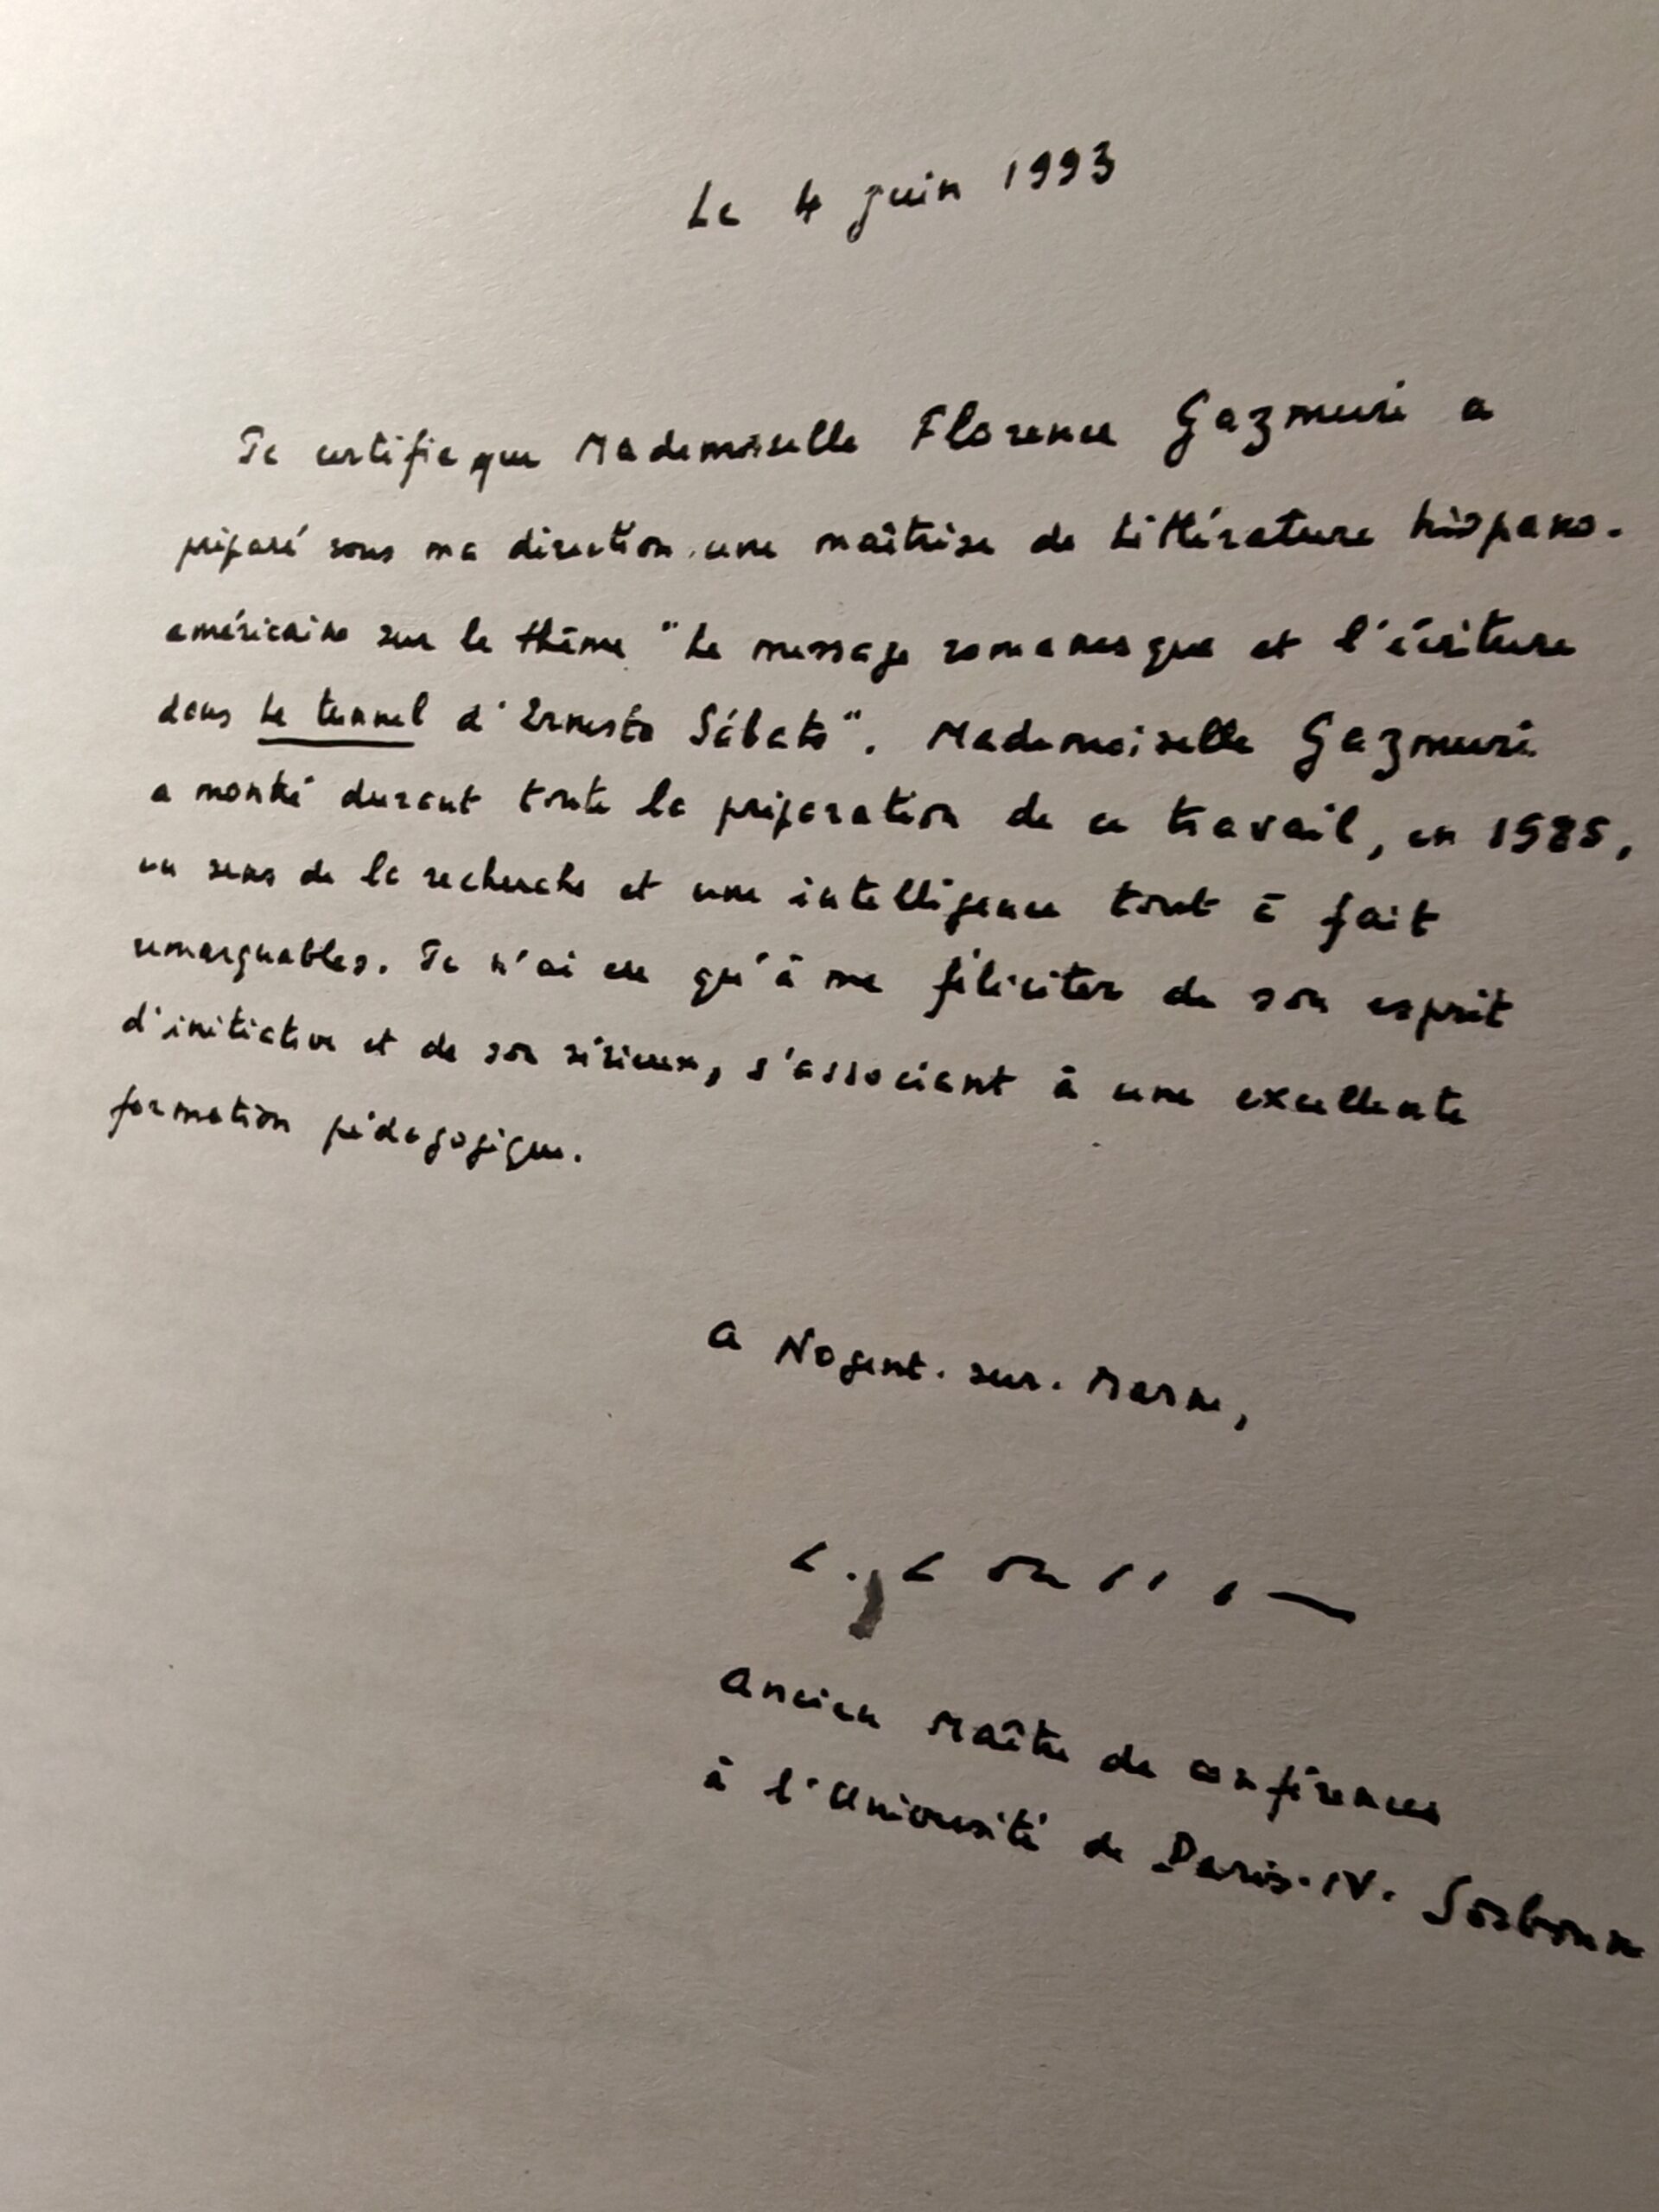 Le 4 juin 1993
Je certifie que Mademoiselle Florence Gazmuri a
préparé sous ma direction une maîtrise de Littérature hispano-
américaine sur le thème "Le message romanesque et l'écriture
dans Le tunnel d'Ernesto Sábato". Mademoiselle Gazmuri
a montré durant toute la préparation de ce travail, en 1985,
un sens de la recherche et une intelligence tout à fait
remarquables. Je n'ai eu qu'à me féliciter de son esprit
d'initiative et de son sérieux, s'associant à une excellente
formation pédagogique.
A Nogent-sur-Marne,
Ancien Maître de conférences
à l'Université de Paris-IV-Sorbonne